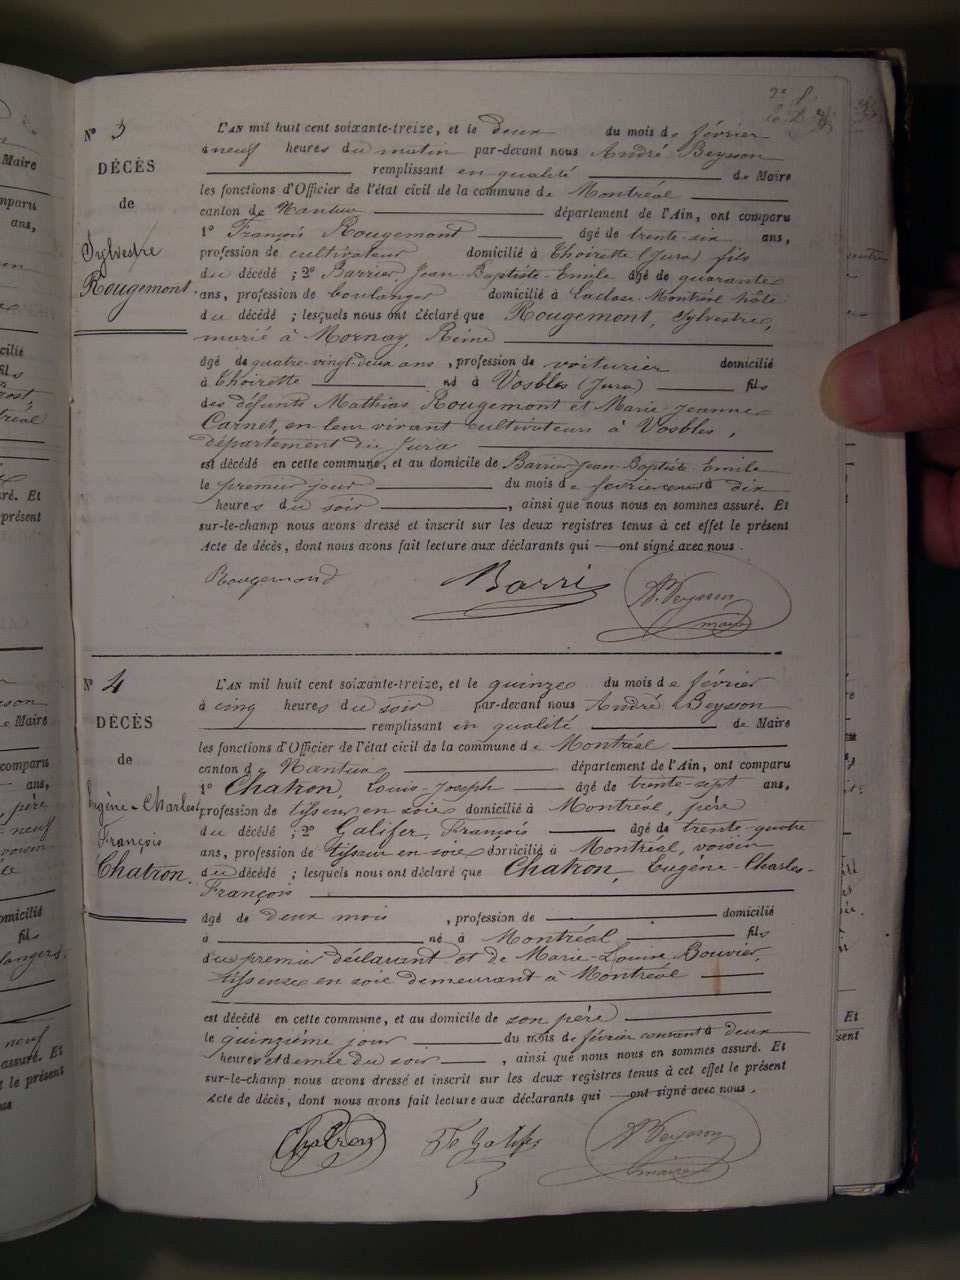 N° 3
DÉCÈS
de
Sylvestre
Rougemont.
L'AN mil huit cent soixante-treize, et le deux du mois de février
à neuf heures du matin par-devant nous André Beysson
remplissant en qualité de Maire
les fonctions d'Officier de l'état civil de la commune de Montréal
canton de Nantua département de l'Ain, ont comparu
1° François Rougemont âgé de trente-six ans,
profession de cultivateur domicilié à Thoirette (Jura) fils
du décédé ; 2° Barrier Jean-Baptiste-Emile âgé de quarante
ans, profession de boulanger domicilié à Lacluse-Montréal hôte
du décédé ; lesquels nous ont déclaré que Rougemont, Sylvestre,
marié à Mornay, Reine
âgé de quatre-vingt-deux ans, profession de voiturier domicilié
à Thoirette né à Vosbles (Jura) fils
des défunts Mathias Rougemont et Marie-Jeanne
Carnet, en leur vivant cultivateurs à Vosbles,
département du Jura
est décédé en cette commune, et au domicile de Barrier Jean-Baptiste-Emile
le premier jour du mois de février courant à dix
heures du soir , ainsi que nous nous en sommes assuré. Et
sur-le-champ nous avons dressé et inscrit sur les deux registres tenus à cet effet le présent
Acte de décès, dont nous avons fait lecture aux déclarants qui ont signé avec nous.
Rougemond Barri A. Beysson
maire
N° 4
DÉCÈS
de
Eugène-Charles
François
Chatron.
L'AN mil huit cent soixante-treize, et le quinze du mois de février
à cinq heures du soir par-devant nous André Beysson
remplissant en qualité de Maire
les fonctions d'Officier de l'état civil de la commune de Montréal
canton de Nantua département de l'Ain, ont comparu
1° Chatron, Louis-Joseph âgé de trente-sept ans,
profession de tisseur en soie domicilié à Montréal, père
du décédé ; 2° Galifer, François âgé de trente-quatre
ans, profession de tisseur en soie domicilié à Montréal, voisin
du décédé ; lesquels nous ont déclaré que Chatron, Eugène-Charles-
François
âgé de deux mois , profession de domicilié
à né à Montréal fils
du premier déclarant et de Marie-Louise Bouvier,
tisseuse en soie demeurant à Montréal
est décédé en cette commune, et au domicile de son père
le quinzième jour du mois de février courant à deux
heures et demie du soir , ainsi que nous nous en sommes assuré. Et
sur-le-champ nous avons dressé et inscrit sur les deux registres tenus à cet effet le présent
Acte de décès, dont nous avons fait lecture aux déclarants qui ont signé avec nous.
Chatron Galifer A. Beysson
maire